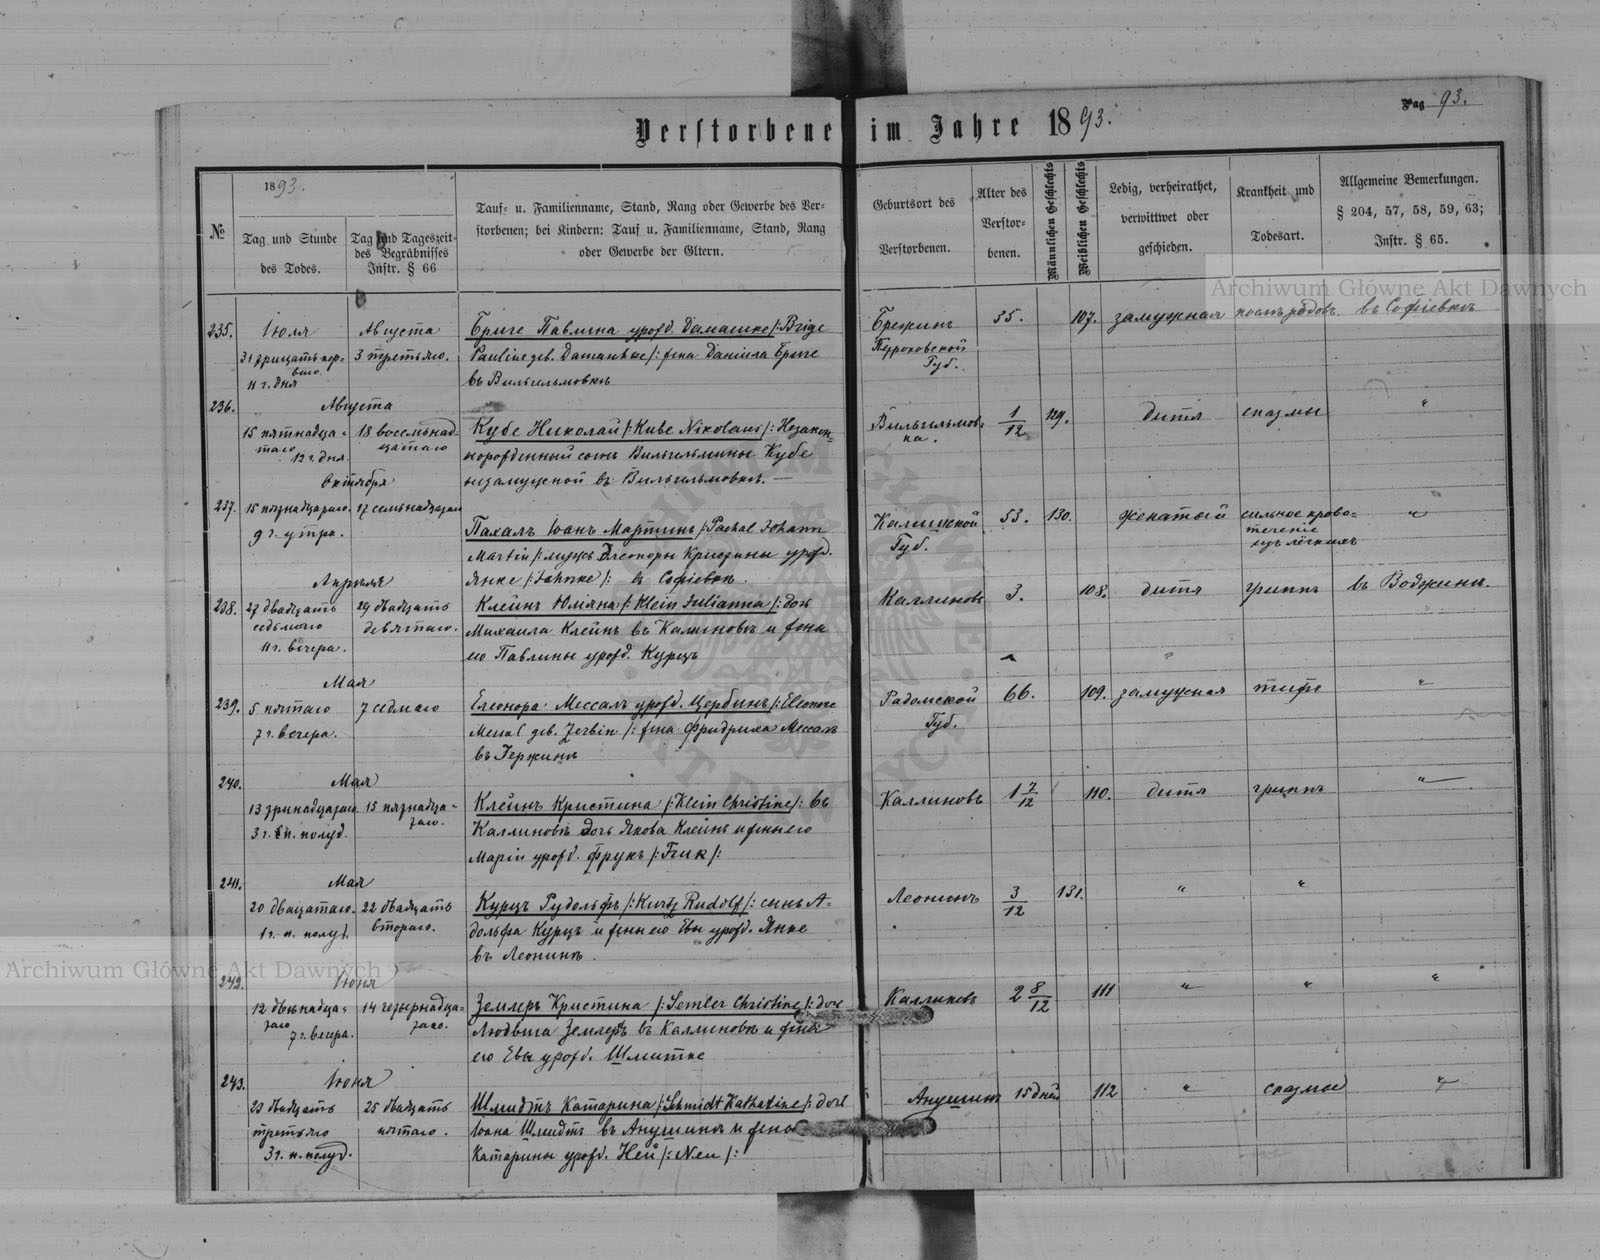 Pag 93.
Verstorbene im Jahre 1893.
№
1893.
Tag und Stunde
des Todes.
Tag und Tageszeit
des Begräbnisses
Instr. § 66
Tauf- u. Familienname, Stand, Rang oder Gewerbe des Ver-
storbenen; bei Kindern: Tauf u. Familienname, Stand, Rang
oder Gewerbe der Eltern.
Geburtsort des
Verstorbenen.
Alter des
Verstor-
benen.
Männlichen Geschlechts
Weiblichen Geschlechts
Ledig, verheirathet,
verwittwet oder
geschieden.
Krankheit und
Todesart.
Allgemeine Bemerkungen.
§ 204, 57, 58, 59, 63;
Instr. § 65.
Archiwum Główne Akt Dawnych
235. Июля Августа Бриге Павлина урожд. Дамашке /: Brige Брежин 35. 107. замужная послѣ родовъ въ Софіевкѣ
31 тридцать пер- 3 третьяго. Pauline geb. Damaschke /: жена Даніила Бриге Петроковской
ваго въ Вильгельмовкѣ Губ.
11 г. дня
236. Августа
15 пятнадца- 18 восемьнад- Кубе Николай /: Kube Nikolaus /: Незакон- Вильгельмов- 1/12 129. дитя спазмы "
таго цатаго норожденный сынъ Вильгельмины Кубе ка.
12 г. дня.
Октября незамужной въ Вильгельмовкѣ. —
237. 15 пятнадцатаго. 17 семьнадцатаго Пахалъ Іоанъ Мартинъ /: Pachal Johann Калишской 53. 130. женатый сильное крово- "
9 г. утра. Martin /: мужъ Элеоноры Кристины урожд. Губ. теченіе
изъ лёгкихъ
Апрѣля Янке /: Jahnke /: въ Софіевкѣ.
238. 27 двадцать 29 двадцать Клейнъ Юліяна /: Klein Julianna /: дочь Каллиновъ 3. 108. дитя гриппъ въ
седьмаго девятаго. Михаила Клейнъ въ Калиновѣ и жены
11 г. вечера. его Павлины урожд. Курцъ
Мая
239. 5 пятаго 7 седмаго Елеонора Мессалъ урожд. Цербинъ /: Eleonore Радомской 66. 109. замужная тифъ "
7 г. вечера. Messal geb. Zerbin /: жена Фридриха Мессалъ Губ.
въ
240. Мая
13 тринадцатаго 15 пятнадца- Клейнъ Кристина /: Klein Christine /: въ Каллиновъ 1 7/12 110. дитя гриппъ "
таго.
3 г. п. полуд. Каллиновѣ дочь Якова Клейнъ и жены его
Маріи урожд. Фрукъ
241. Мая
20 двацатаго. 22 двадцать Курцъ Рудольфъ /: Kurtz Rudolf /: сынъ А- Леонинъ 3/12 131. " "
1 г. п. полуд. втораго. дольфа Курцъ и жены его Евы урожд. Янке
въ Леонинѣ.
Archiwum Główne Akt Dawnych
242. Іюня
12 двѣнадца- 14 четырнадца- Землеръ Кристина /: Semler Christine /: дочь Каллиновъ 2 8/12 111 " " "
таго таго. Людвига Землеръ въ Каллиновѣ и жены
7 г. вечера. его Евы урожд. Шмитке
243. Іюня
23 двадцать 25 двадцать Шмидтъ Катарина /: Schmidt Katharine /: дочь Анушинъ 15 дней 112 " спазмы "
третьяго пятаго. Іоана Шмидтъ въ Анушинѣ и жены
3 г. п. полуд. Катарины урожд. Ней /: Neu /: